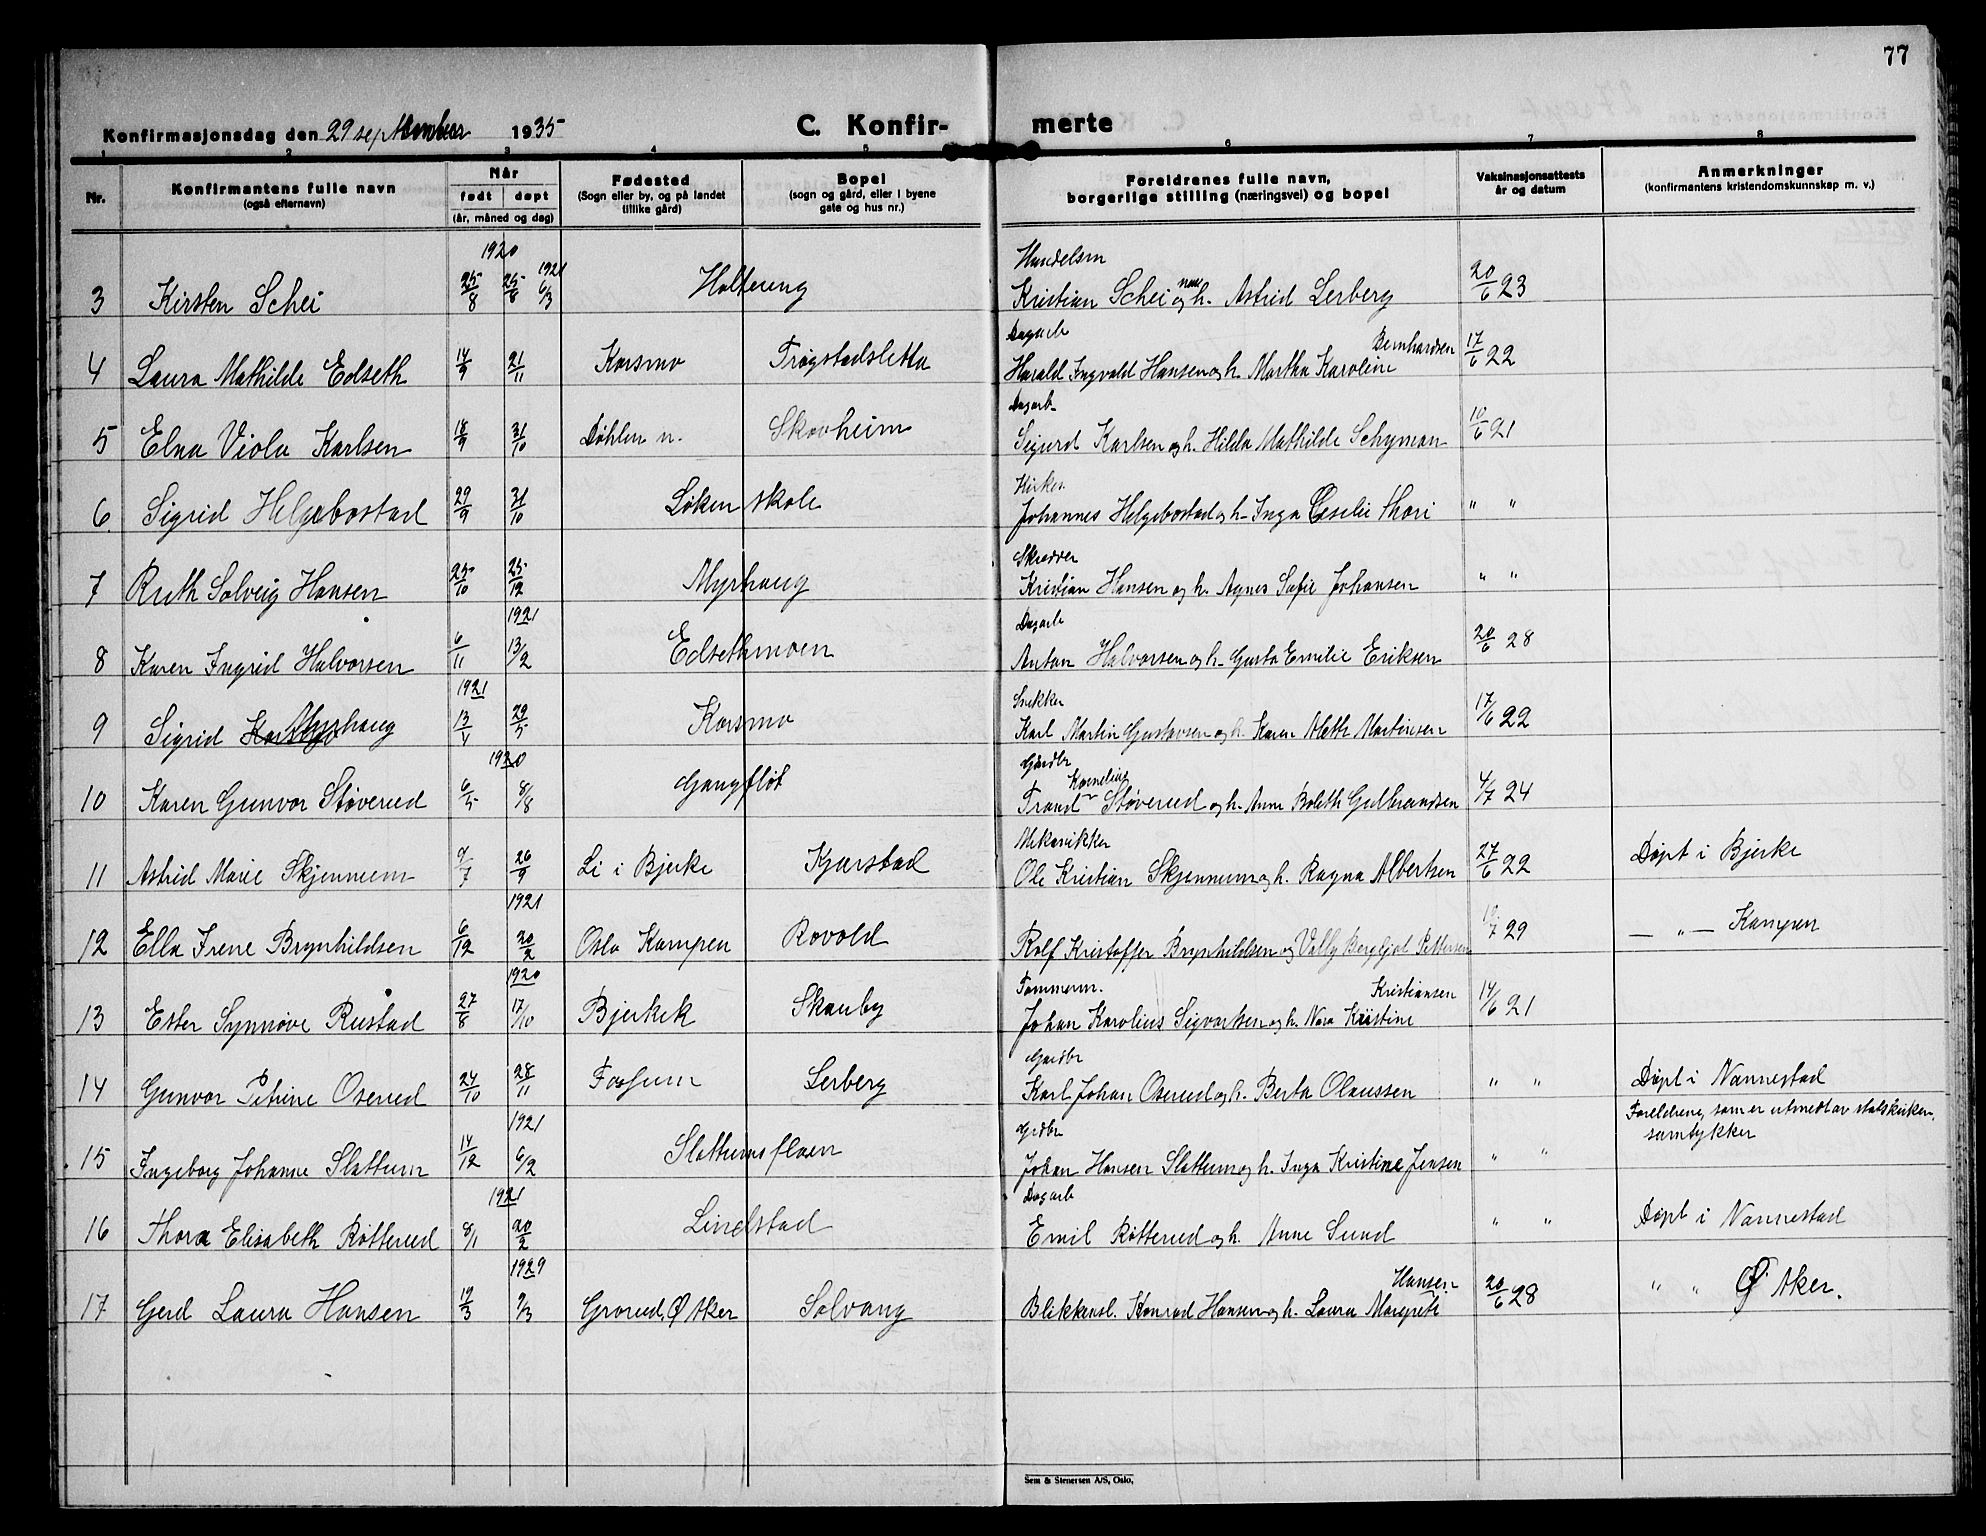 77
Konfirmasjonsdag den 29 september 1935
C. Konfir-
merte
1 2 3 4 5 6 7 8
Nr.
Konfirmantens fulle navn
(også efternavn)
Når
født døpt
(år, måned og dag)
Fødested
(Sogn eller by, og på landet
tillike gård)
Bopel
(sogn og gård, eller i byene
gate og hus nr.)
Foreldrenes fulle navn,
borgerlige stilling (næringsvei) og bopel
Vaksinasjonsattests
år og datum
Anmerkninger
(konfirmantens kristendomskunnskap m. v.)
1920 1921 Handelsm
3 Kirsten Schei 25/8 6/3 Holteeng Kristian Schei og h. Astrid Lerberg 20/6 23
Dagarb Bernhardsen
4 Laura Mathilde Edseth 14/9 21/11 Korsmo Trøgstadsletta Harald Ingvald Hansen og h. Martha Karoline 17/6 22
Dagarb
5 Elna Viola Karlsen 18/9 31/10 Døhlen n. Skovheim Sigurd Karlsen og h. Hilda Mathilde Schyman 10/6 21
Kirkes
6 Sigrid Helgebostad 29/9 31/10 Løken skole Johannes Helgebostad og h. Inga Cesilie Thori " "
Skredder
7 Ruth Solveig Hansen 25/10 25/12 Myrhaug Kristian Hansen og h. Agnes Sofie Johansen " "
1921 Dagarb
8 Karen Ingrid Halvorsen 6/11 13/2 Edsethmoen Anton Halvorsen og h. Gusta Emilie Eriksen 20/6 28
1921 Snekker
9 Sigrid Myrhaug 13/1 29/5 Korsmo Karl Martin Gustavsen og h. Karen Aleth Martinsen 17/6 22
1920 Gårdbr Kornelius
10 Karen Gunvor Støverud 6/5 8/8 Gangfløt Trond Støverud og h. Anne Boleth Gulbrandsen 4/7 24
Mekanikker
11 Astrid Marie Skjennum 9/7 26/9 Li i Bjerke Kjærstad Ole Kristian Skjennum og h. Ragna Albertsen 27/6 22 Døpt i Bjerke
1921
12 Ella Irene Brynhildsen 6/12 20/2 Oslo Kampen Rovold Rolf Kristoffer Brynhildsen og Vally Bergljot Pettersen 29 — " — Kampen
1920 Tømmerm. Kristiansen
13 Ester Synnøve Rustad 27/8 17/10 Bjerkek Skauby Johan Karolius Sigvartsen og h. Nora Kristine 14/6 21
Gårdbr
14 Gunvor Petrine Oserud 24/10 28/11 Fossum Lerberg Karl Johan Oserud og h. Berta Olaussen " " Døpt i Nannestad
1921 Grdbr Foreldrene, som er utmedt av statskirken,
samtykker
15 Ingeborg Johanne Slattum 14/12 6/2 Slattumsfloen Johan Hansen Slattum og h. Inga Kristine Jensen " "
1921 Dagarb
16 Thora Elisabeth Røtterud 8/1 20/2 Lindstad Emil Røtterud og h. Anne Sund " " Døpt i Nannestad
1929 Hansen
17 Gerd Laura Hansen 19/3 9/3 Grorud, Ø Aker Solvang Blikkensl. Konrad Hansen og h. Laura Margrete 20/6 28 " " Ø Aker.
Sem & Stenersen A/S, Oslo.